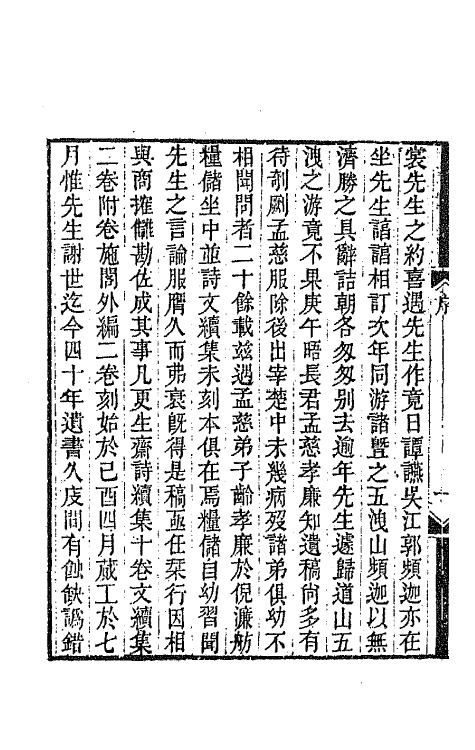 裳先生之約喜遇先生作竟日譚讌吳江郭頻迦亦在
坐先生諳諳相訂次年同游諸暨之五洩山頻迦以無
濟勝之具辭詰朝各匆匆別去逾年先生遽歸道山五
洩之游竟不果庚午晤長君孟慈孝廉知遺稿尚多有
待剞劂孟慈服除後出宰楚中未幾病歿諸弟俱幼不
相聞問者二十餘載茲遇孟慈弟子齡孝廉於倪濂舫
糧儲坐中並詩文續集未刻本俱在焉糧儲自幼習聞
先生之言論服膺久而弗衰旣得是稿亟任栞行因相
與商搉讎勘佐成其事凡更生齋詩續集十卷文續集
二卷附卷施閣外編二卷刻始於己酉四月蕆工於七
月惟先生謝世迄今四十年遺書久庋間有蝕缺譌錯
序
一